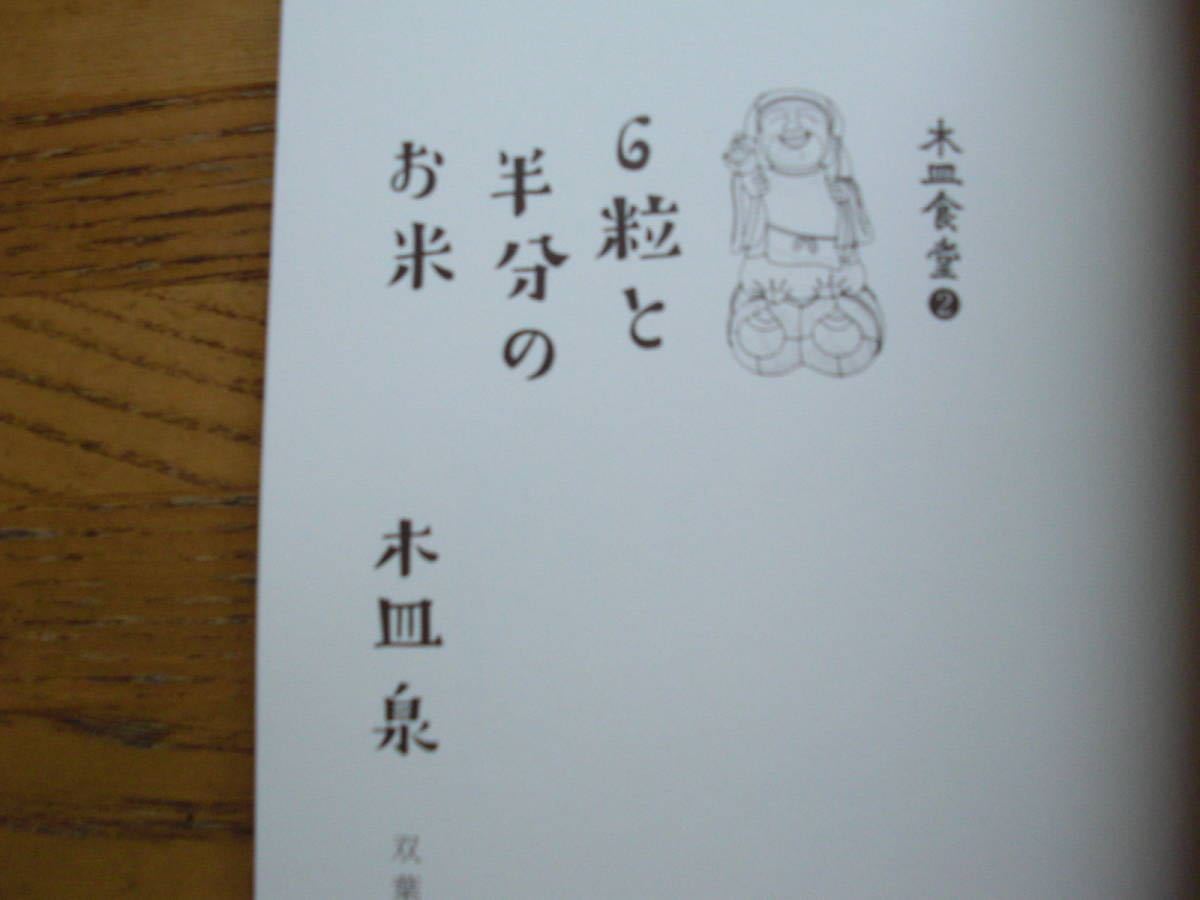 木皿食堂❷
6粒と
半分の
お米
木皿泉
双葉